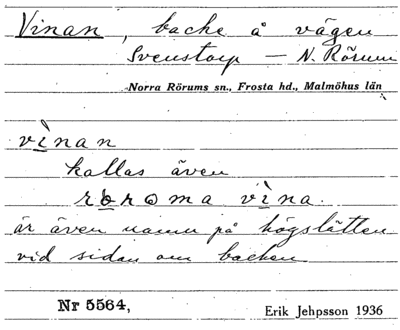 Vinan, backe å vägen
Svenstorp — N. Rörum
Norra Rörums sn., Frosta hd., Malmöhus län
vìnan
kallas även
röroma vìna.
är även namn på högslätten
vid sidan om backen
Nr 5564,
Erik Jehpsson 1936